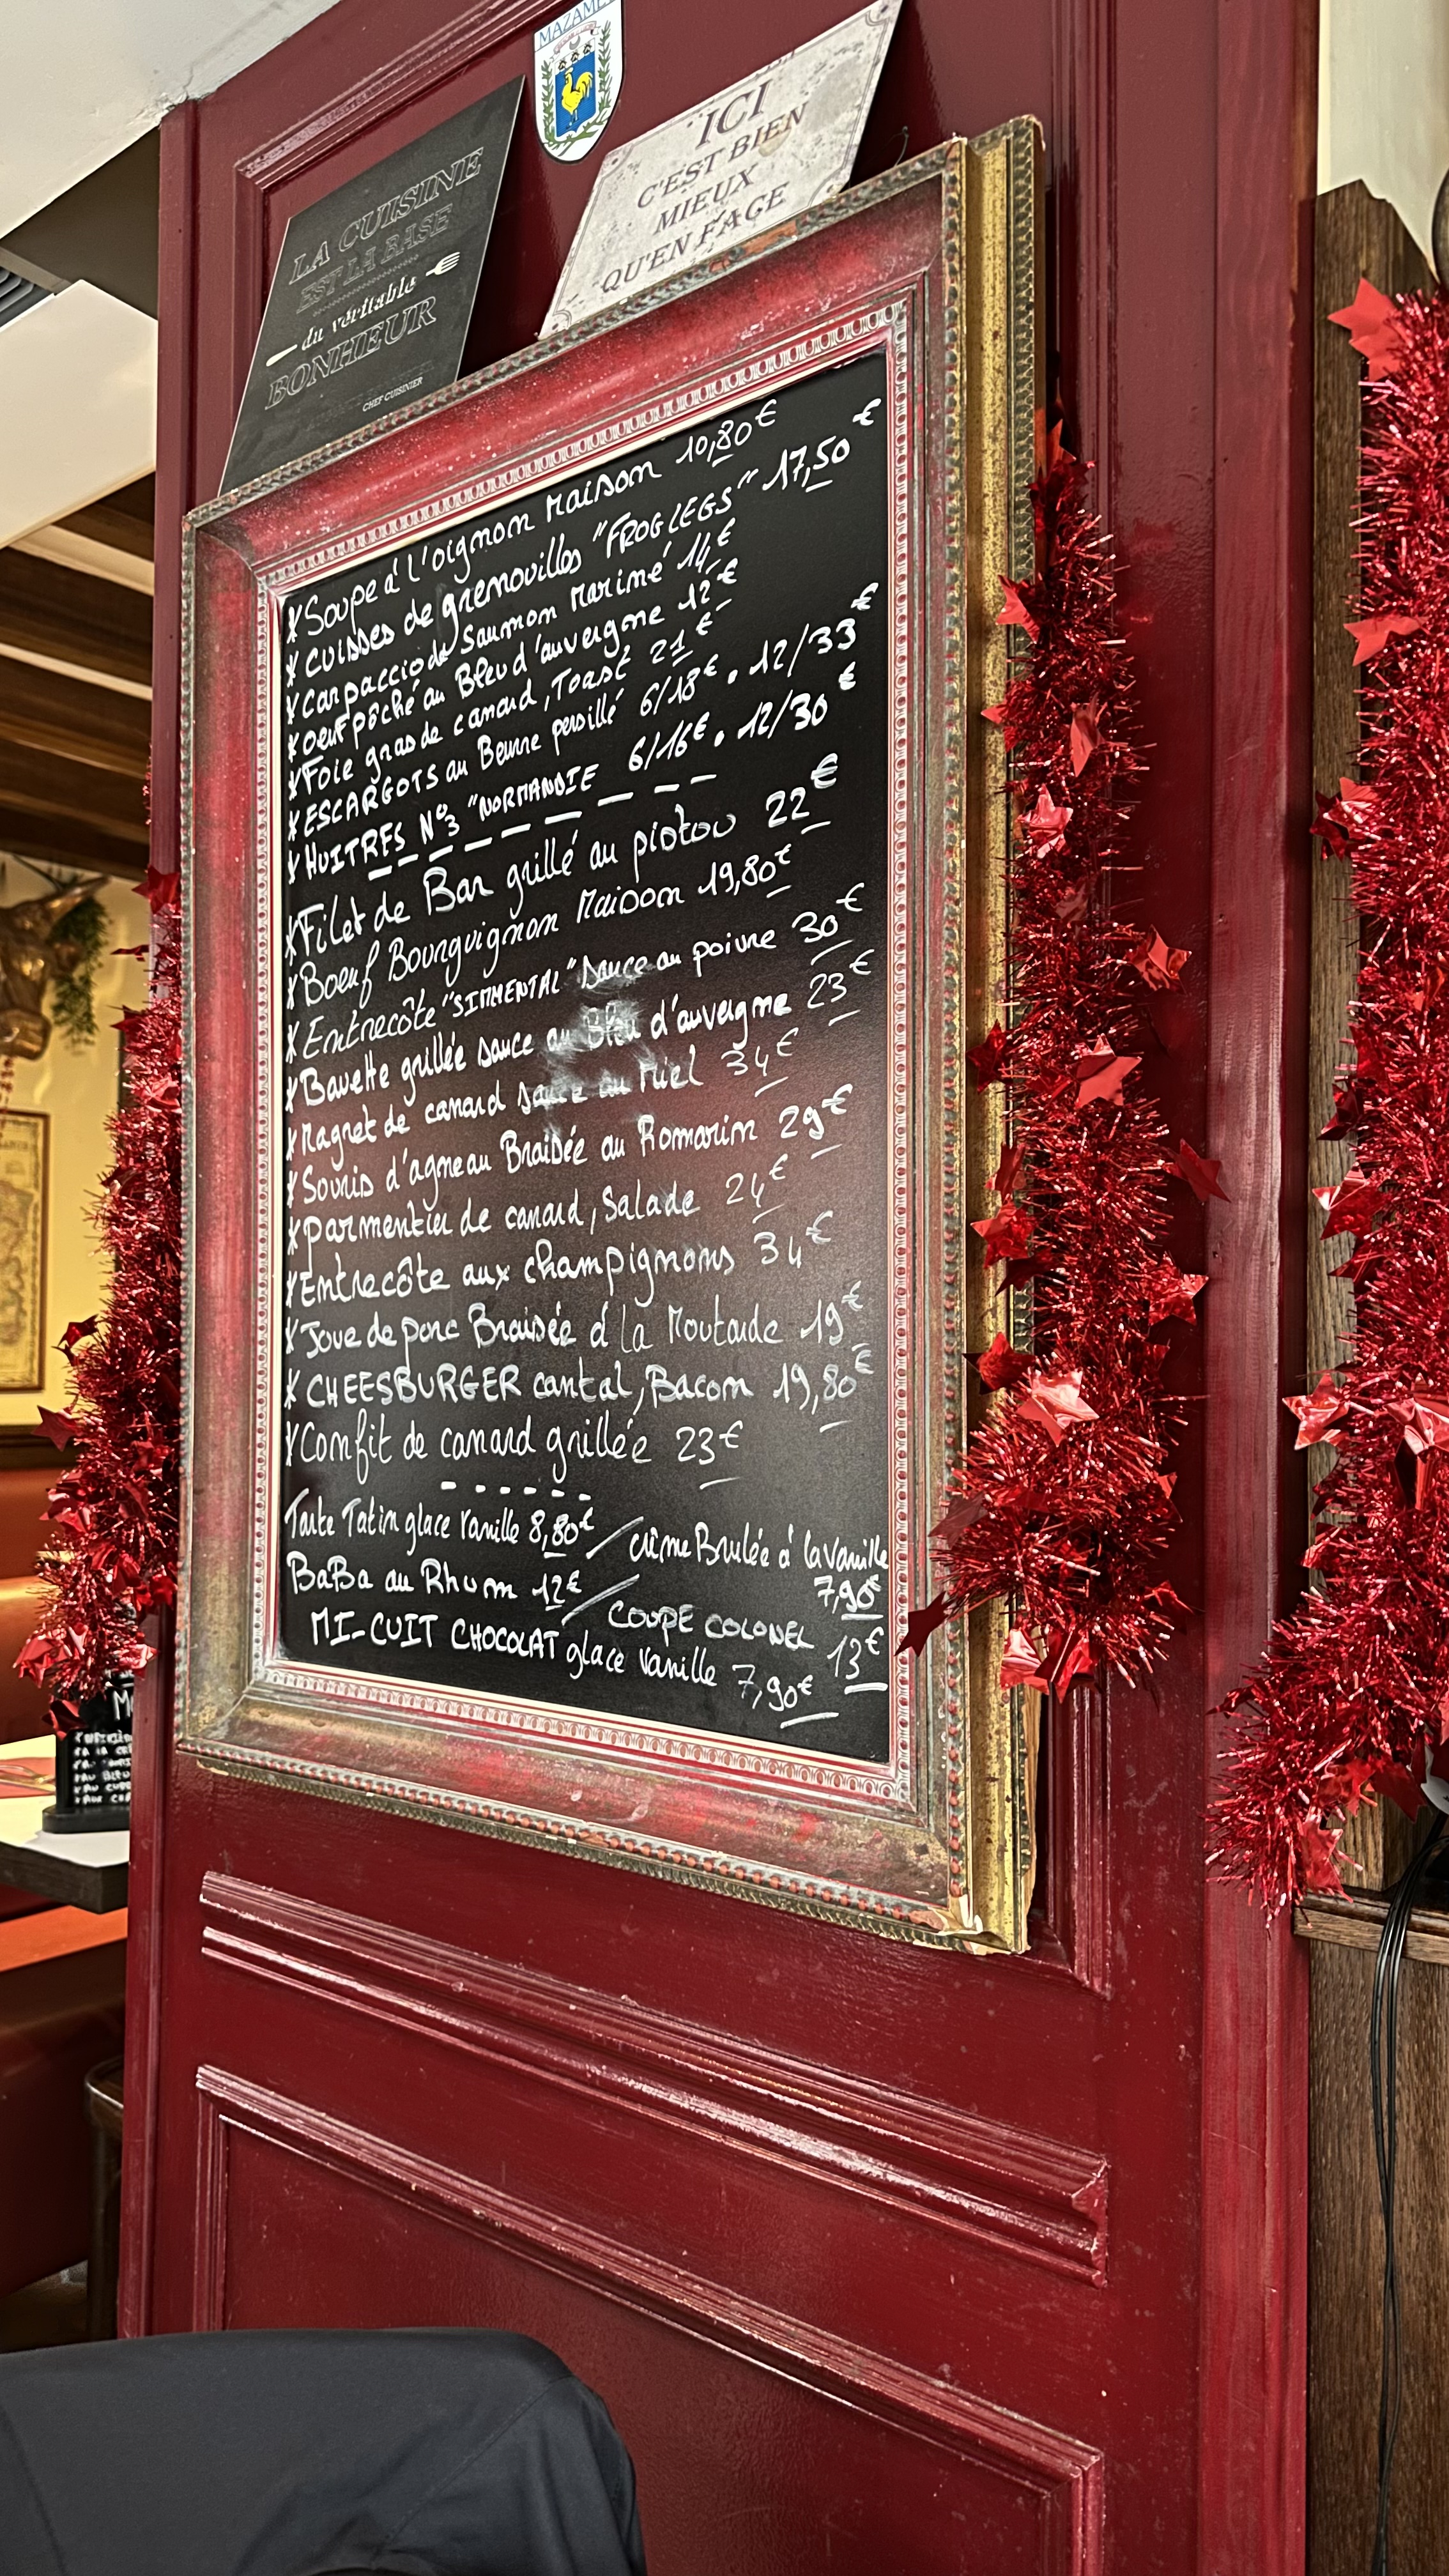 MAZAME
ICI
C'EST BIEN
MIEUX
QU'EN FACE
LA CUISINE
EST LA BASE
du véritable
BONHEUR
CHEF CUISINIER
* Soupe à l'oignon Maison 10,80€
* cuisses de grenouilles "FROG LEGS" 17,50€
* carpaccio de Saumon Mariné 14€
* oeuf pôché au Bleu d'auvergne 12€
* Foie gras de canard, Toast 21€
* ESCARGOTS au Beurre persillé 6/18€ . 12/33€
* HUITRES N°3 "NORMANDIE 6/16€ . 12/30€
* Filet de Bar grillé au pistou 22€
* Boeuf Bourguignon Maison 19,80€
* Entrecôte "SIMMENTAL" sauce au poivre 30€
* Bavette grillée sauce au Bleu d'auvergne 23€
* Magret de canard sauce au Miel 34€
* Souris d'agneau Braisée au Romarin 29€
* parmentier de canard, Salade 24€
* Entrecôte aux champignons 34€
* Joue de porc Braisée à la Moutarde 19€
* CHEESBURGER cantal, Bacon 19,80€
* Confit de canard grillée 23€
Tarte Tatin glace Vanille 8,80€ / crème Brulée à la Vanille 7,90€
BaBa au Rhum 12€ / COUPE COLONEL 13€
MI-CUIT CHOCOLAT glace Vanille 7,90€